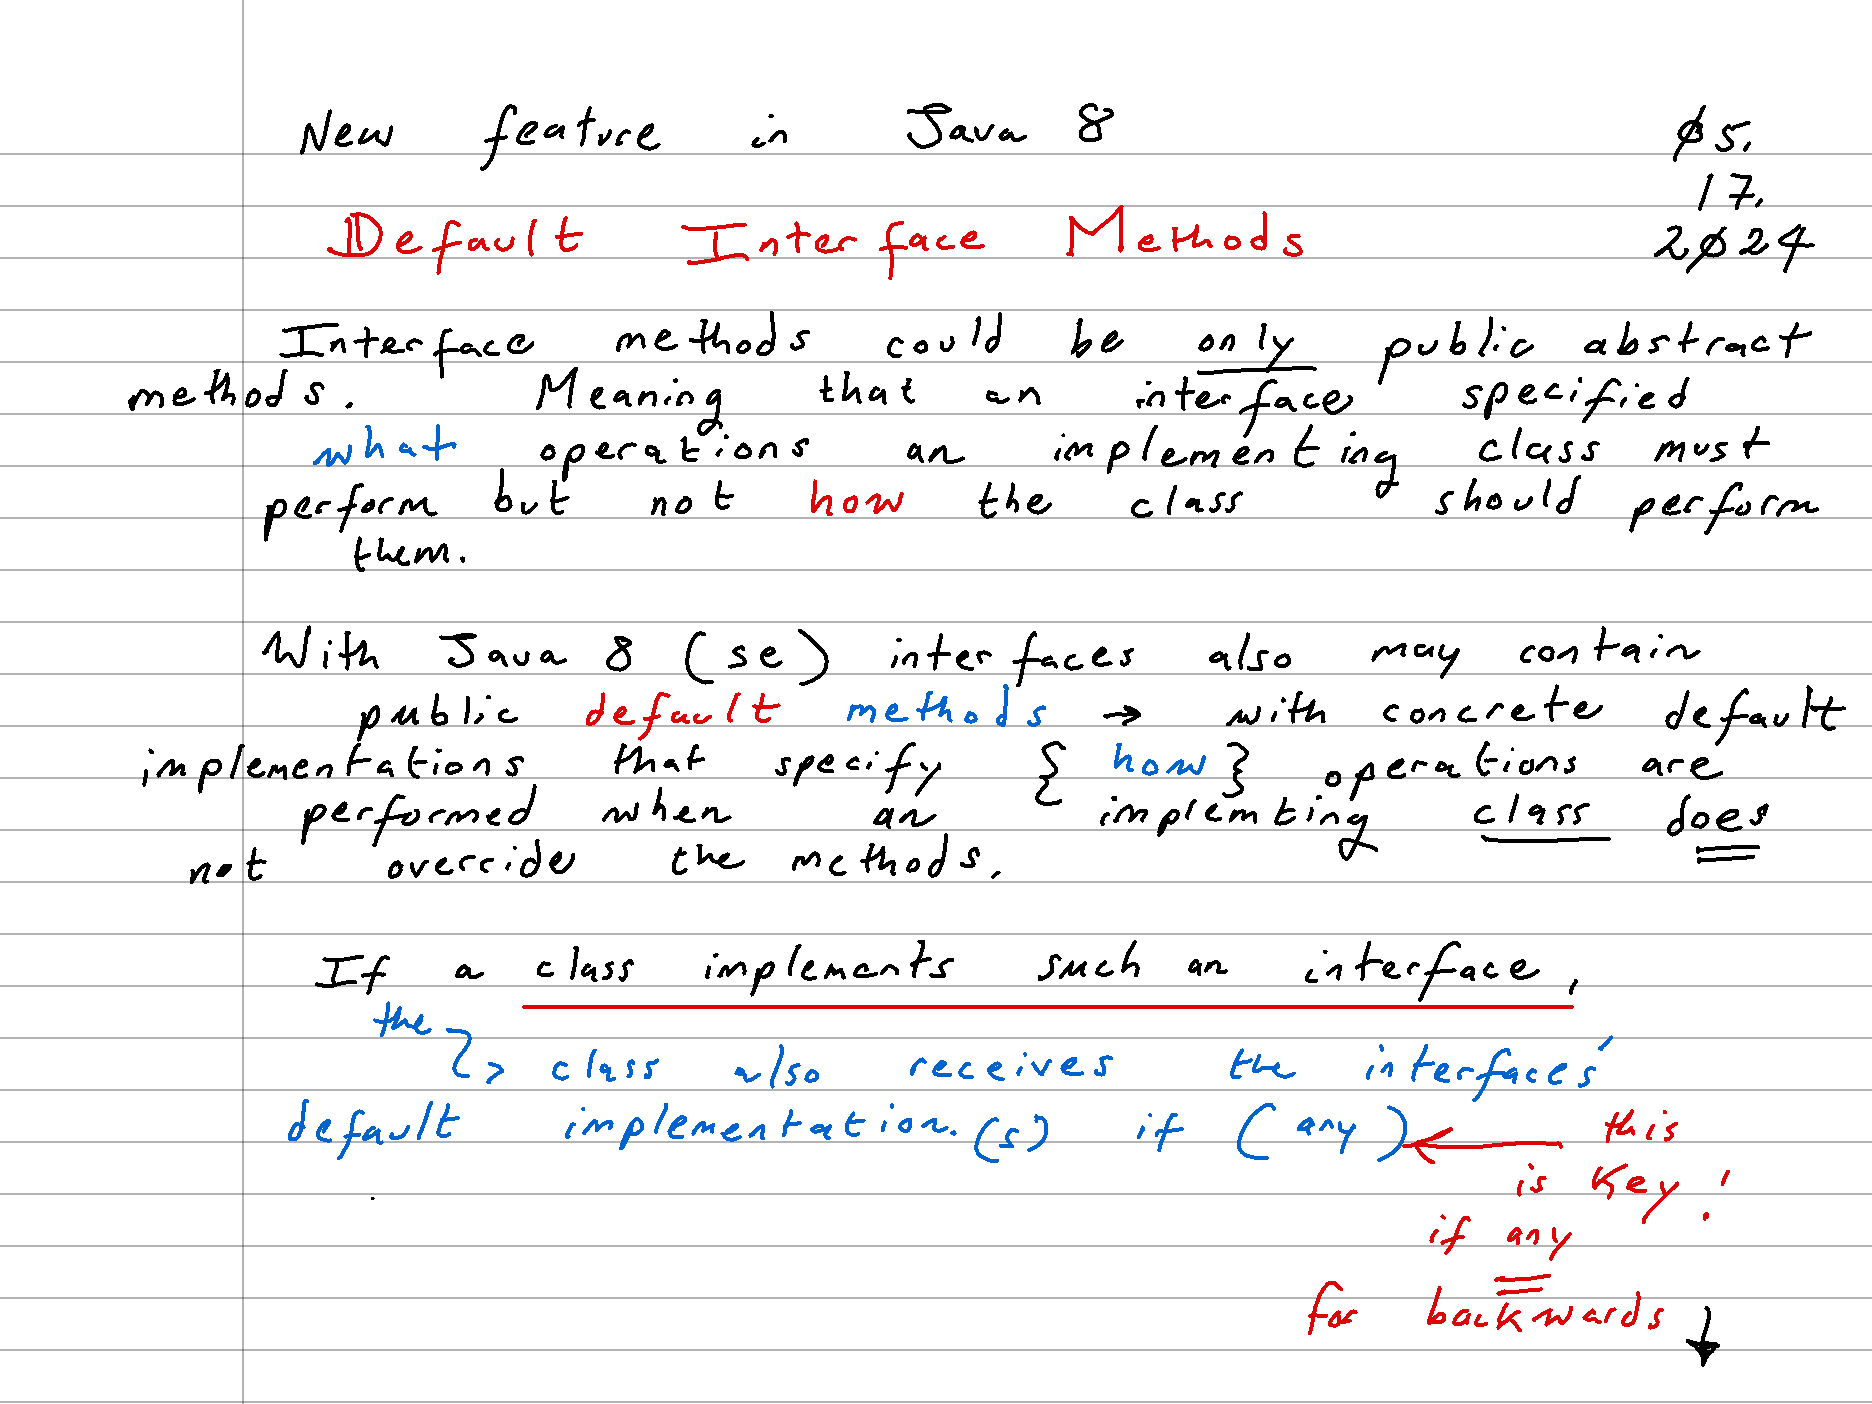 New feature in Java 8
05.
17.
2024
Default Interface Methods
Interface methods could be only public abstract
methods. Meaning that an interface specified
what operations an implementing class must
perform but not how the class should perform
them.
With Java 8 (se) interfaces also may contain
public default methods → with concrete default
implementations that specify { how } operations are
performed when an implemting class does
not override the methods.
If a class implements such an interface,
the
↳ class also receives the interfaces'
default implementation.(s) if (any) ← this
is Key!
if any
for backwards ↓